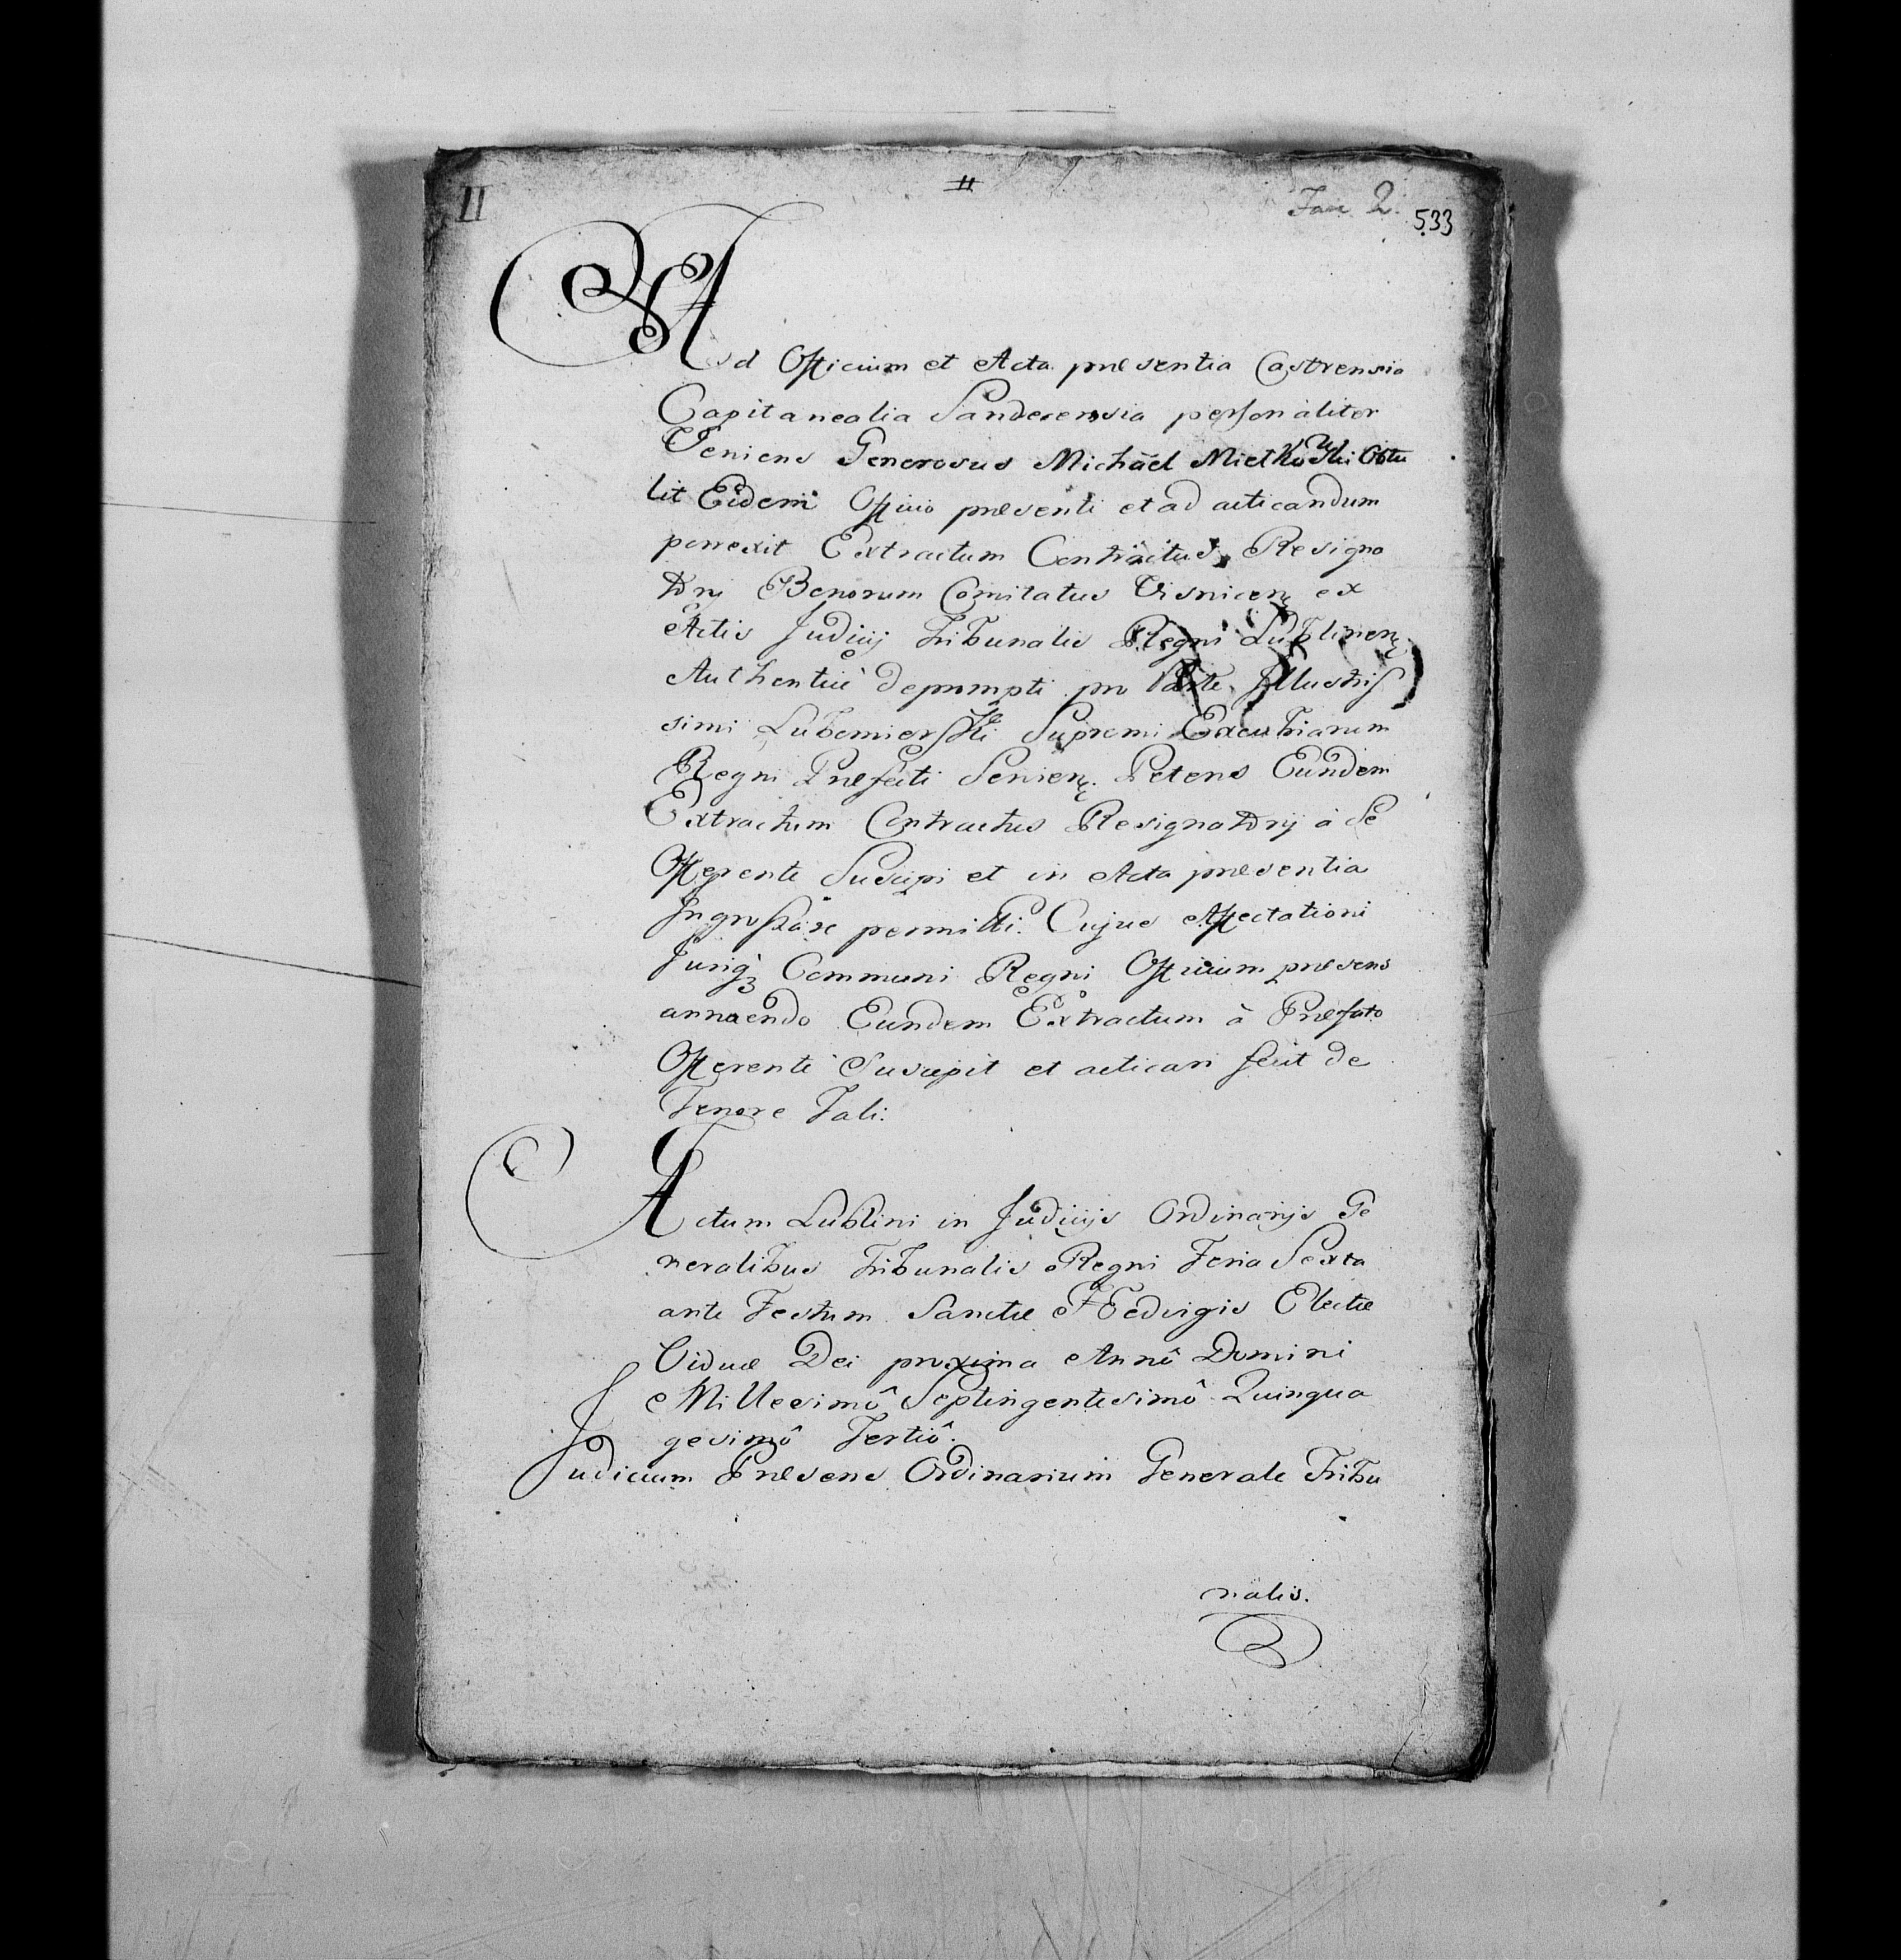 II
II
Fasc 2.
533
Ad Officium et Acta præsentia Castrensia
Capitanealia Sandecensia personaliter
Veniens Generosus Michäel Mietkowski Obtu
lit Eidem Officio præsenti et ad acticandum
porrexit Extractum Contractus Resigna
torij Bonorum Comitatus Visnicen. ex
Actis Judicij Tribunalis Regni Lublinen.
Authentice deprompti pro Parte Illustris
simi Lubomierski Supremi Excubiarum
Regni Præfecti Servien. Petens Eundem
Extractum Contractus Resignatorij à Se
Offerente Suscipi et in Acta præsentia
Ingrossare permitti. Cujus Affectationi
Jurique Communi Regni Officium præsens
annuendo Eundem Extractum à Præfato
Offerente Suscepit et acticari fecit de
Tenore Tali:
Actum Lublini in Judicijs Ordinarijs Ge
neralibus Tribunalis Regni Feria Sexta
ante Festum Sanctæ Hedvigis Electæ
Viduæ Dei proxima Annô Domini
Millesimô Septingentesimô Quinqua
gesimô Tertiô.
Judicium Præsens Ordinarium Generale Tribu
nalis.